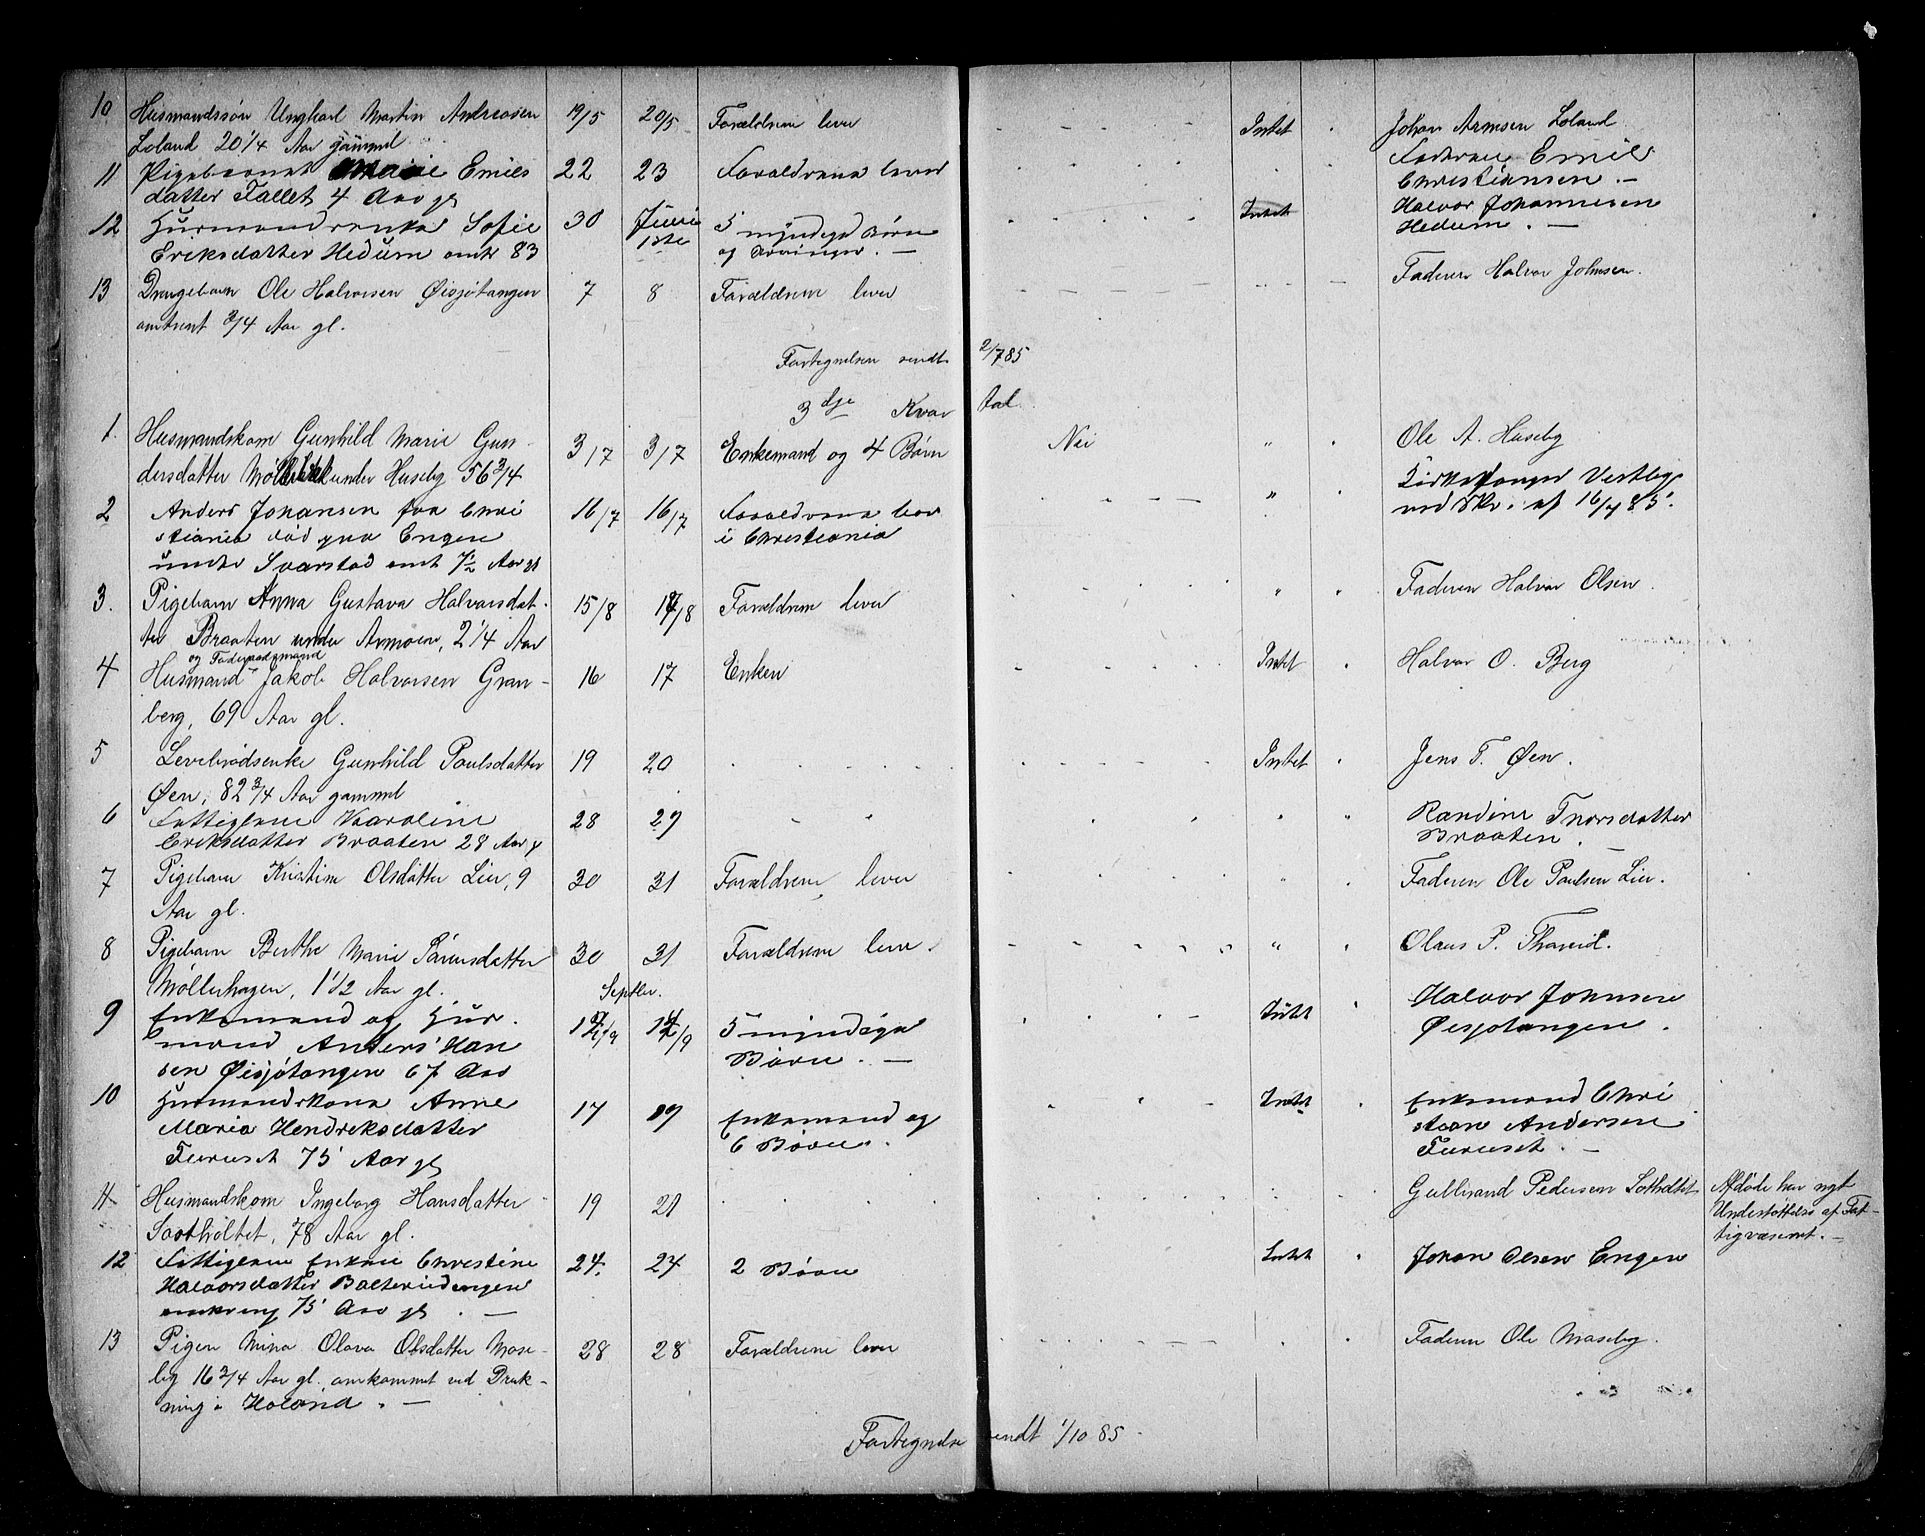 10 Husmandssøn Ungkarl Martin Andreasen 19/5 20/5 Forældrene lever Intet Johan Arnesen Loland
Loland 20 1/4 Aar gammel
11 Pigebarnet Marie Emils 22 23 Forældrene lever Faderen Emil
datter Fallet 4 Aar gl Christiansen. —
12 Husmandsenke Sofie 30 Juni 5 myndige Børn Intet Halvor Johannesen
Eriksdatter Hedum omtr 83 1ste og Arvinger. — Hedum. —
13 Drengebarn Ole Halvorsen Øisjøtangen 7 8 Forældrene lever Faderen Halvor Johnsen.
omtrent 3/4 Aar gl.
Fortegnelsen sendt 2/7 85
3 dje Kvartal
1. Husmandskone Gunhild Marie Gun- 3/7 3/7 Enkemand og 4 Børn Nei " Ole A. Huseby
dersdatter under Huseby 56 3/4
2 Anders Johansen fra Chri 16/7 16/7 Forældrene bor " Kirkesanger Vestby
stiania død paa Engen i Christiania ved Skr. af 16/7 85.
under Svarstad omt 7 1/2 Aar gl
3. Pigebarn Anna Gustava Halvorsdat- 15/8 17/8 Forældrene lever " Faderen Halvor Olsen.
ter Braaten under Armoen, 2 1/4 Aar
og Føderaadsmand
4 Husmand Jakob Halvorsen Gran- 16 17 Enken Intet Halvor O. Berg
berg, 69 Aar gl.
5 Levebrødsenke Gunhild Paulsdatter 19 20 Intet Jens T. Øen.
Øen, 82 3/4 Aar gammel
6 Fattiglem Karoline 28 29 " Randine Thorsdatter
Eriksdatter Braaten 28 Aar g Braaten. —
7 Pigebarn Kristine Olsdatter Lier, 9 30 31 Forældrene lever " Faderen Ole Paulsen Lier.
Aar gl.
8 Pigebarn Berthe Marie Sørensdatter 30 31 Forældrene leve. " Olaus P.
Møllerhagen, 1 1/2 Aar gl. Septbr.
9 Enkemand og Hus- 12/9 14/9 5 myndige Intet Halvor Johnsen
mand Anders Han Børn. — Øisjøtangen.
sen Øisjøtangen 67 Aar
10 Husmandskone Anne 17 19 Enkemand og Intet Enkemand Chri
Maria Hendreksdatter 6 Børn. stian Andersen
Furuset 75 Aar gl Furuset. —
11 Husmandskone Ingeborg Hansdatter 19 21 Gulbrand Pedersen Sotholtet Afdøde har nyt
Sootholtet, 78 Aar gl. Understøttelse af Fat-
tigvæsenet. —
12 Fattiglem Enken Christine 24. 27 2 Børn Intet Johan Olsen Engen
Halvorsdatter
omkring 75 Aar gl. —
13 Pigen Mina Olava Olsdatter Mose- 28 28 Forældrene lever Faderen Ole Moseby.
by 16 3/4 Aar gl. omkommet ved Druk-
ning i Høland. —
Fortegnelse sendt 1/10 85.